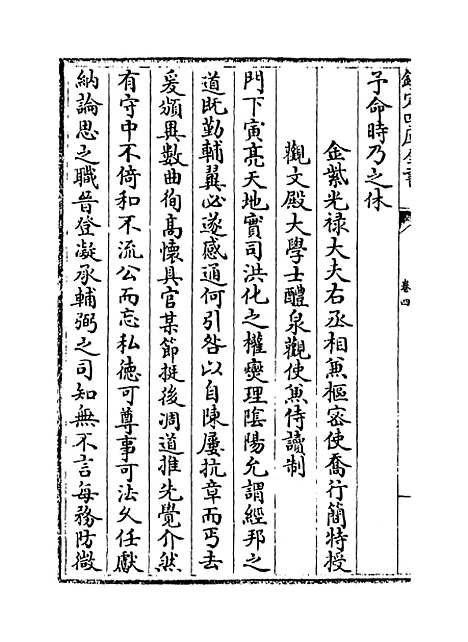 欽定四庫全書
卷四
予命時乃之休
金紫光祿大夫右丞相兼樞密使喬行簡特授
觀文殿大學士醴泉觀使兼侍讀制
門下寅亮天地實司洪化之權燮理隂陽允謂經邦之
道既勤輔翼必遂感通何引咎以自陳屢抗章而丐去
爰頒異數曲徇高懷具官某節挺後凋道推先覺介然
有守中不倚和不流公而忘私徳可尊事可法久任獻
納論思之職晉登凝承輔弼之司知無不言每務防微